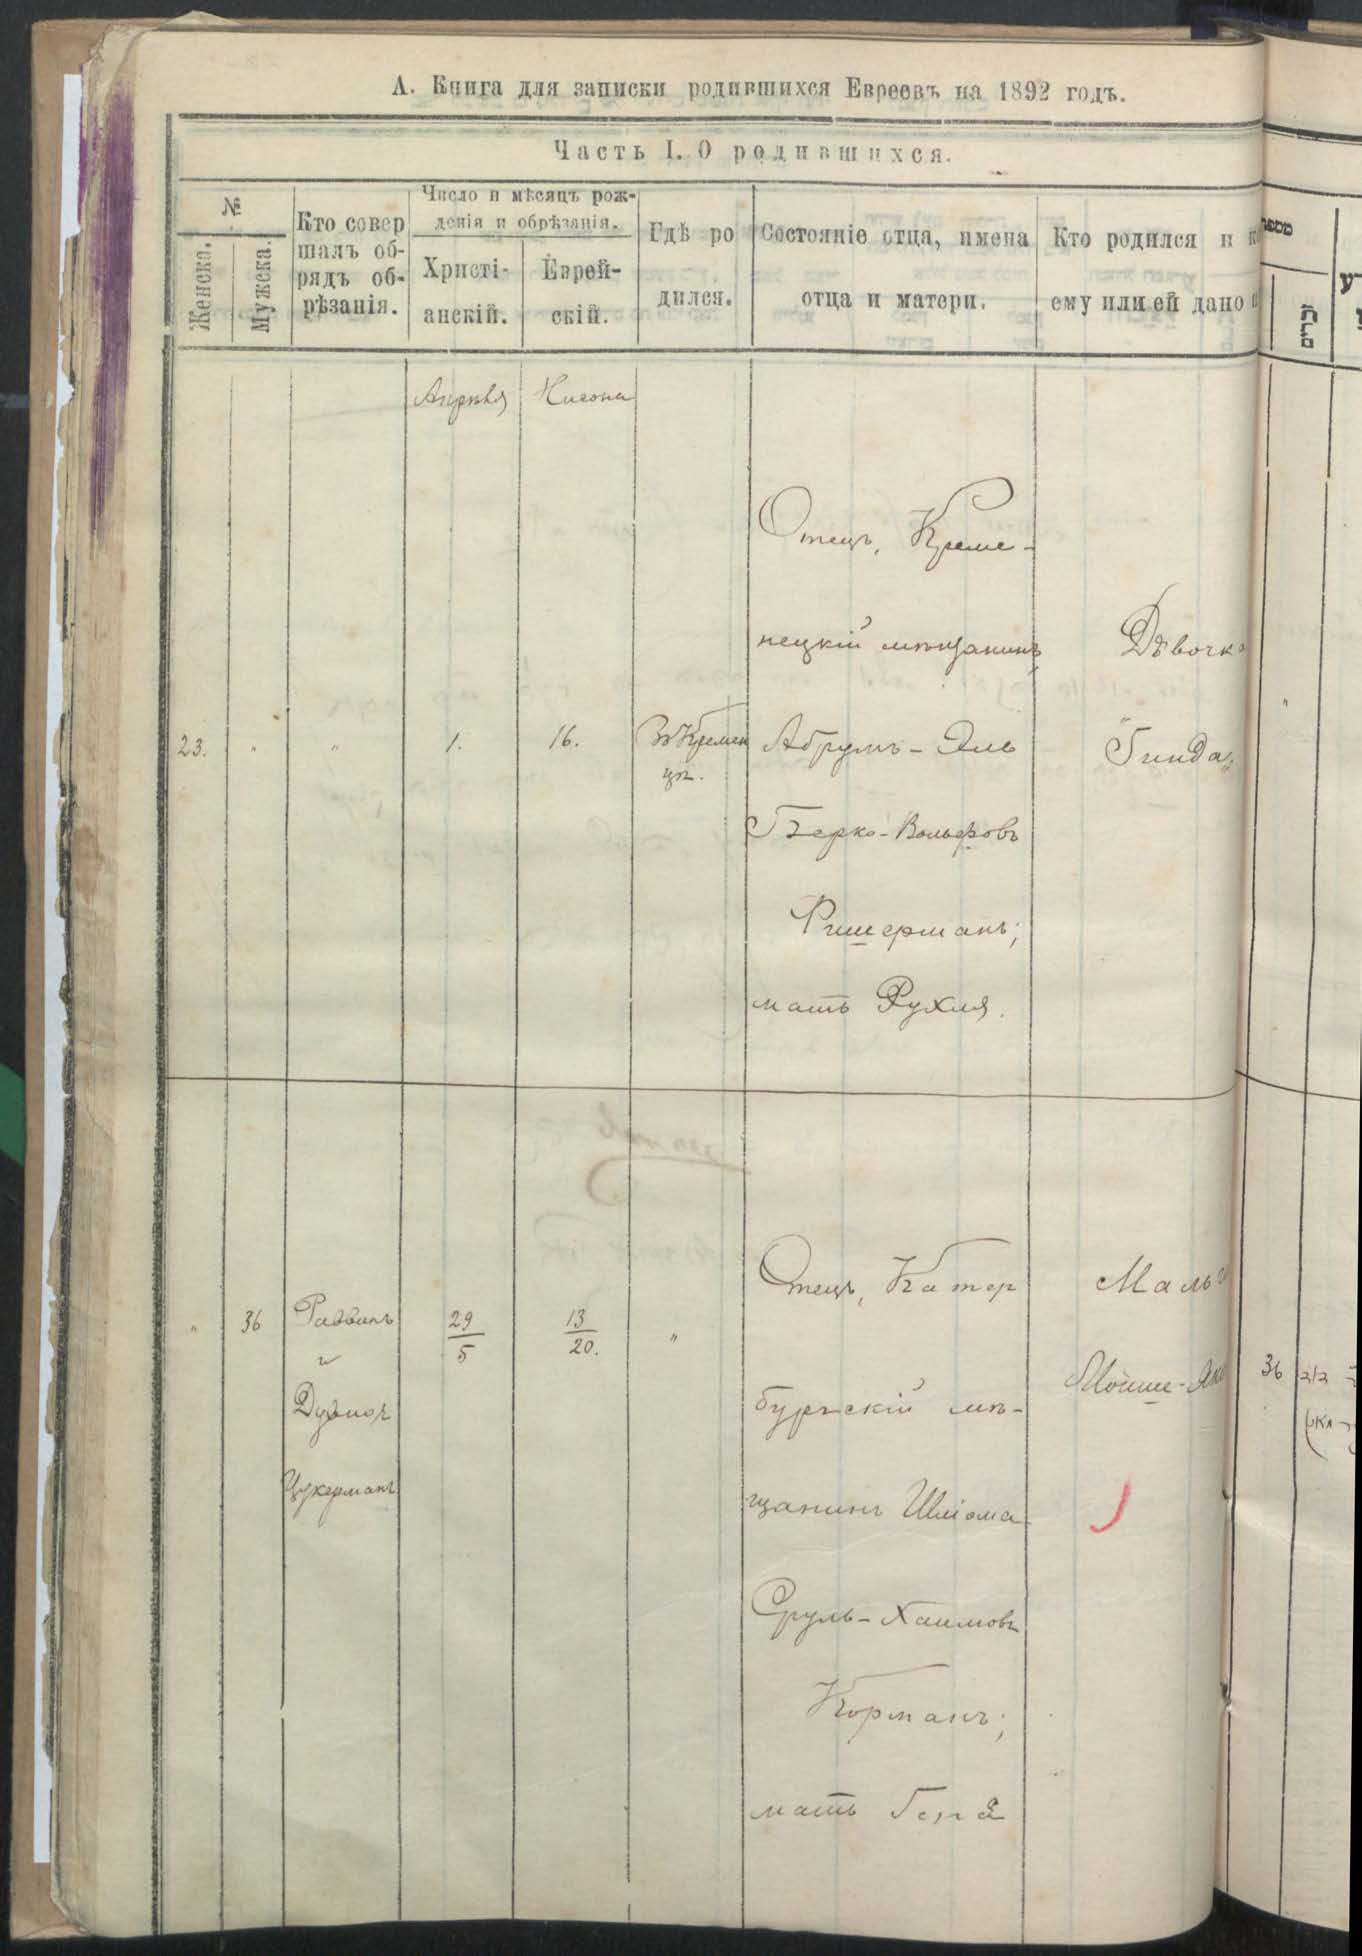 А. Книга для записки родившихся Евреевъ на 1892 годъ.
Часть I. О родившихся.
№
Женска.
Мужска.
Кто совер
шалъ об-
рядъ об-
рѣзанія.
Число и мѣсяцъ рож-
денія и обрѣзанія.
Христі-
анскій.
Еврей-
скій.
Гдѣ ро
дился.
Состояніе отца, имена
отца и матери.
Кто родился и к
ему или ей дано
מספר
זכרים
Апрѣля
Нисона
23.
"
"
1.
16.
Въ Кремен
цѣ.
Отецъ, Креме-
нецкій мѣщанинъ
Абрумъ-Эль
Берко-Вольфовъ
Фишерманъ;
мать Рухля.
Дѣвочка
"Гинда"
"
"
36
Раввинъ
и
Цукерманъ
29
5
13
20.
"
Отецъ, Катер
бургскій мѣ-
щанинъ Шлiома-
Сруль-Хаимовъ
Корманъ;
мать
Мальч
Мойше-Яко
36